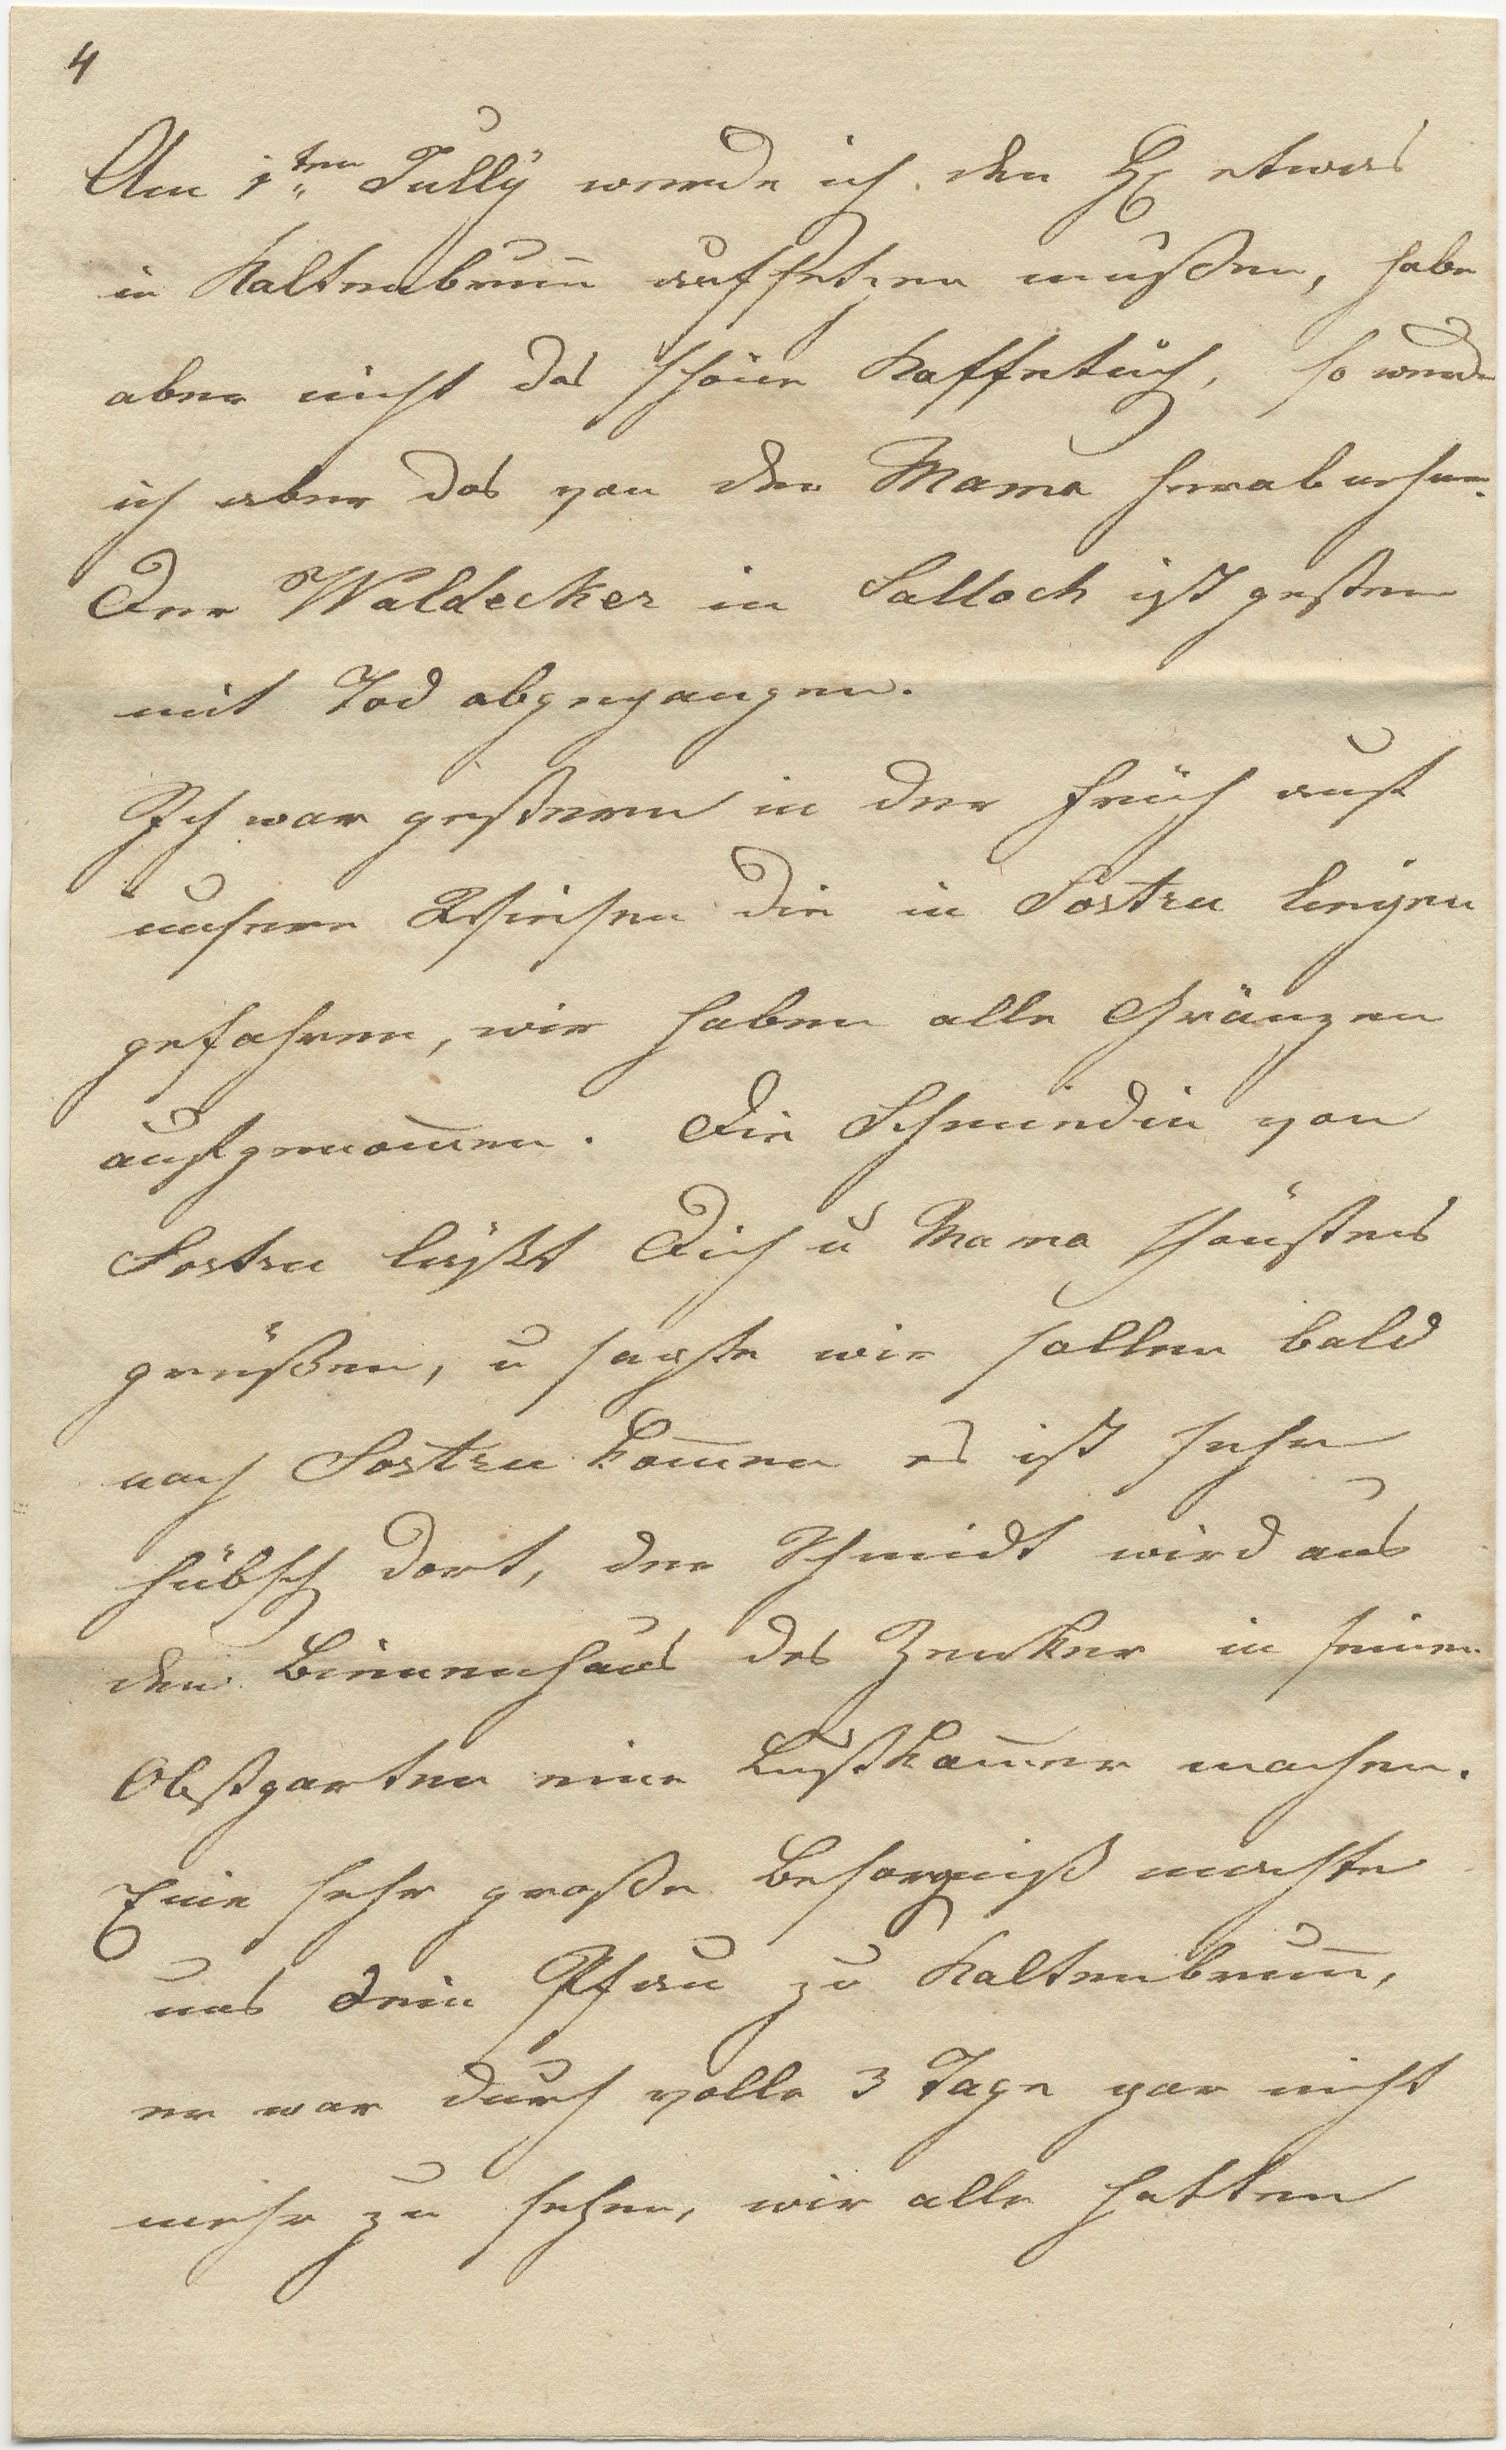 4
Am 1ten Jully werde ich den H etwas
in Kaltenbrunn aufsetzen mußen, habe
aber nicht das schöne Kaffetuch, so werde
ich aber das von der Mama herabnehmen.
Der Waldecker in Salloch ist gestern
mit Tod abgegangen.
Ich war gestern in der Früh auf
unsere Wiesen die in Sostru liegen
gefahren, wir haben alle Gränzen
aufgenom̄en. Die Schmiedin von
Sostru läßt Dich u Mama schönstens
grüßen, u sagte wir sollen bald
nach Sostru kom̄en es ist sehr
hübsch dort, der Schmidt wird aus
den Bienenhaus des Zenker in seinen
Obstgarten eine Lustkam̄er machen.
Eine sehr große Besorgniß machte
uns dein Pfau zu Kaltenbrun̄,
er war durch volle 3 Tage gar nicht
mehr zu sehen, wir alle hatten